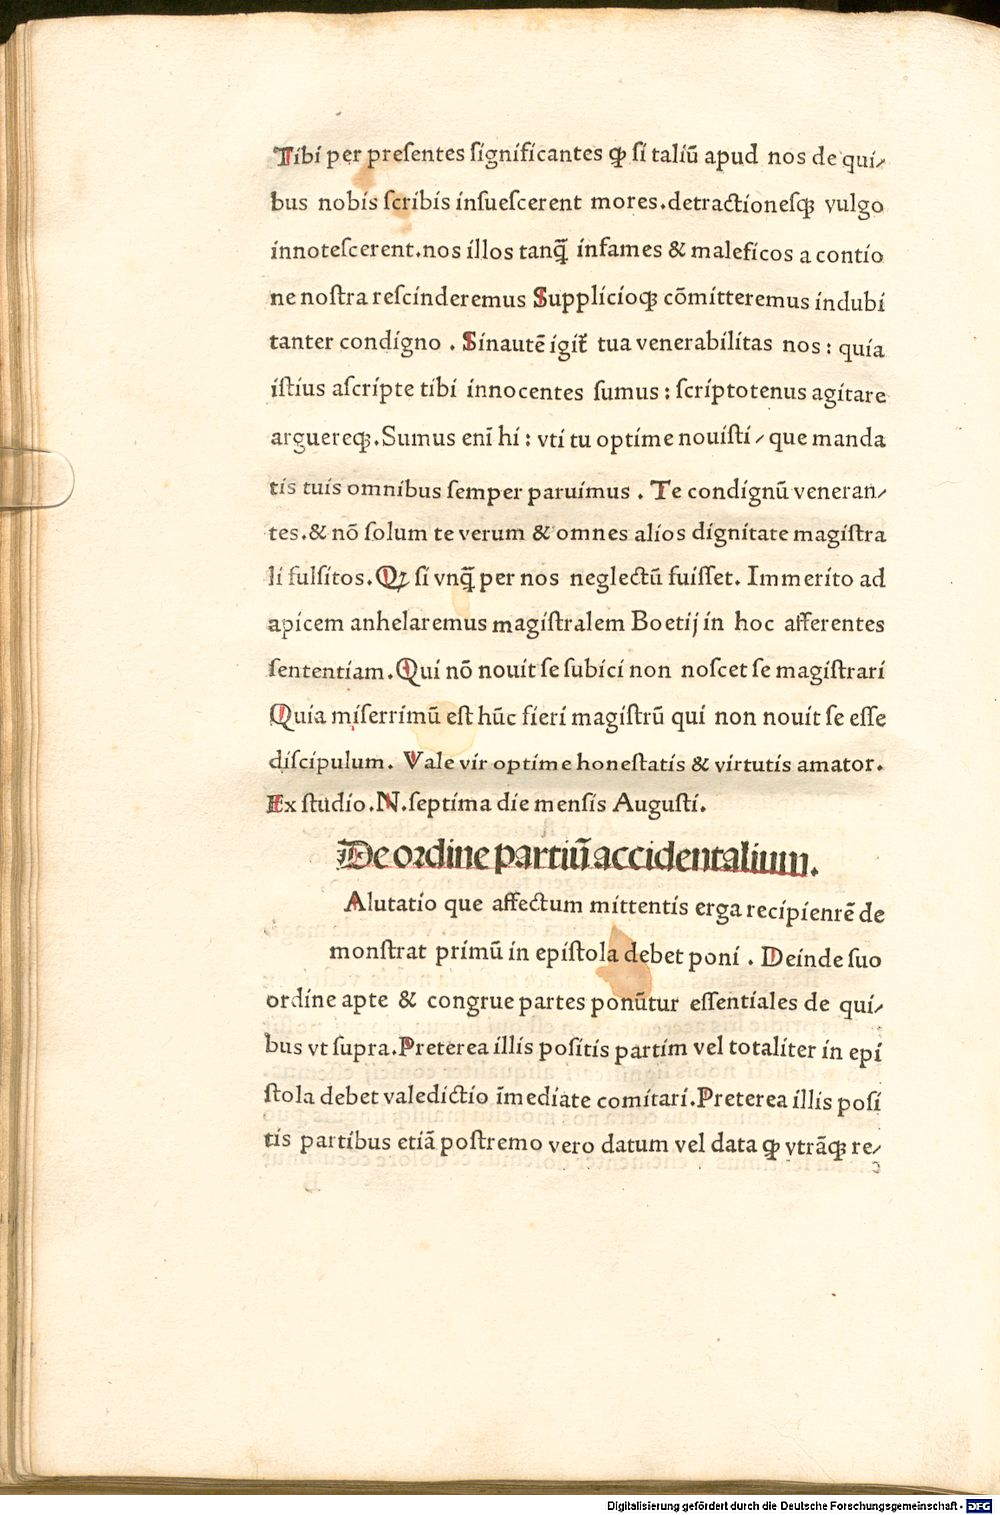 Tibi per preſentes ſignificantes ꝙ ſi taliū apud nos de qui⸗
bus nobis ſcribis inſueſcerent mores.detractioneſqꝫ vulgo
innoteſcerent.nos illos tanq̄ infames & maleficos a contio
ne noſtra reſcinderemus Supplicioqꝫ cōmitteremus indubi
tanter condigno . Sinautē igit᷑ tua venerabilitas nos : quia
iſtius aſcripte tibi innocentes ſumus : ſcriptotenus agitare
arguereqꝫ.Sumus enī hi : vti tu optime nouiſti / que manda
tis tuis omnibus ſemper paruimus . Te condignū veneran⸗
tes.& nō ſolum te verum & omnes alios dignitate magiſtra
li fulſitos.Qꝫ ſi vnq̄ per nos neglectū fuiſſet. Immerito ad
apicem anhelaremus magiſtralem Boetij in hoc afferentes
ſententiam.Qui nō nouit ſe ſubici non noſcet ſe magiſtrari
Quia miſerrimū eſt hūc fieri magiſtrū qui non nouit ſe eſſe
diſcipulum. Vale vir optime honeſtatis & virtutis amator.
Ex ſtudio.N.ſeptima die menſis Auguſti.
De oꝛdine partiū accidentalium.
Alutatio que affectum mittentis erga recipienrē de
monſtrat primū in epiſtola debet poni . Deinde ſuo
ordine apte & congrue partes ponūtur eſſentiales de qui⸗
bus vt ſupra.Preterea illis poſitis partim vel totaliter in epi
ſtola debet valedictio īmediate comitari.Preterea illis poſi
tis partibus etiā poſtremo vero datum vel data ꝙ vtrāqꝫ re⸗
Digitalisierung gefördert durch die Deutsche Forschungsgemeinschaft - DFG